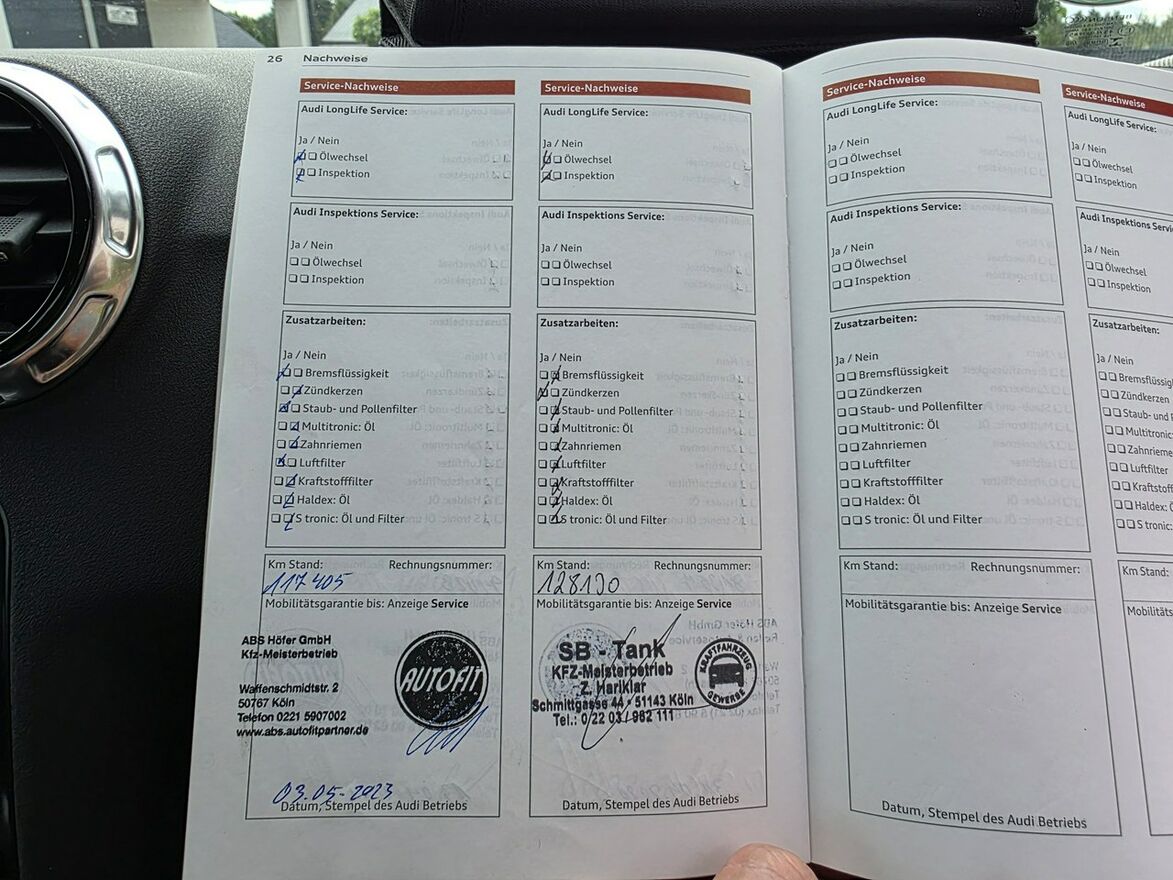 26 Nachweise
Service-Nachweise
Audi LongLife Service:
Ja / Nein
Ölwechsel
Inspektion
Audi Inspektions Service:
Ja / Nein
Ölwechsel
Inspektion
Zusatzarbeiten:
Ja / Nein
Bremsflüssigkeit
Zündkerzen
Staub- und Pollenfilter
Multitronic: Öl
Zahnriemen
Luftfilter
Kraftstofffilter
Haldex: Öl
S tronic: Öl und Filter
Km Stand: Rechnungsnummer:
117405
Mobilitätsgarantie bis: Anzeige Service
ABS Höfer GmbH
Kfz-Meisterbetrieb
Waffenschmidtstr. 2
50767 Köln
Telefon 0221 5907002
www.abs.autofitpartner.de
AUTOFIT
03.05-2023
Datum, Stempel des Audi Betriebs
Service-Nachweise
Audi LongLife Service:
Ja / Nein
Ölwechsel
Inspektion
Audi Inspektions Service:
Ja / Nein
Ölwechsel
Inspektion
Zusatzarbeiten:
Ja / Nein
Bremsflüssigkeit
Zündkerzen
Staub- und Pollenfilter
Multitronic: Öl
Zahnriemen
Luftfilter
Kraftstofffilter
Haldex: Öl
S tronic: Öl und Filter
Km Stand: Rechnungsnummer:
128190
Mobilitätsgarantie bis: Anzeige Service
SB - Tank
KFZ-Meisterbetrieb
Z. Hariklar
Schmittgasse 44 · 51143 Köln
Tel.: 0 22 03 / 982 111
KRAFTFAHRZEUG
GEWERBE
Datum, Stempel des Audi Betriebs
Service-Nachweise
Audi LongLife Service:
Ja / Nein
Ölwechsel
Inspektion
Audi Inspektions Service:
Ja / Nein
Ölwechsel
Inspektion
Zusatzarbeiten:
Ja / Nein
Bremsflüssigkeit
Zündkerzen
Staub- und Pollenfilter
Multitronic: Öl
Zahnriemen
Luftfilter
Kraftstofffilter
Haldex: Öl
S tronic: Öl und Filter
Km Stand: Rechnungsnummer:
Mobilitätsgarantie bis: Anzeige Service
Datum, Stempel des Audi Betriebs
Service-Nachweise
Audi LongLife Service:
Ja / Nein
Ölwechsel
Inspektion
Audi Inspektions Servic
Ja / Nein
Ölwechsel
Inspektion
Zusatzarbeiten:
Ja / Nein
Bremsflüssig
Zündkerzen
Staub- und
Multitronic:
Zahnrieme
Luftfilter
Kraftstoff
Haldex: Ö
S tronic:
Km Stand:
Mobilitäts